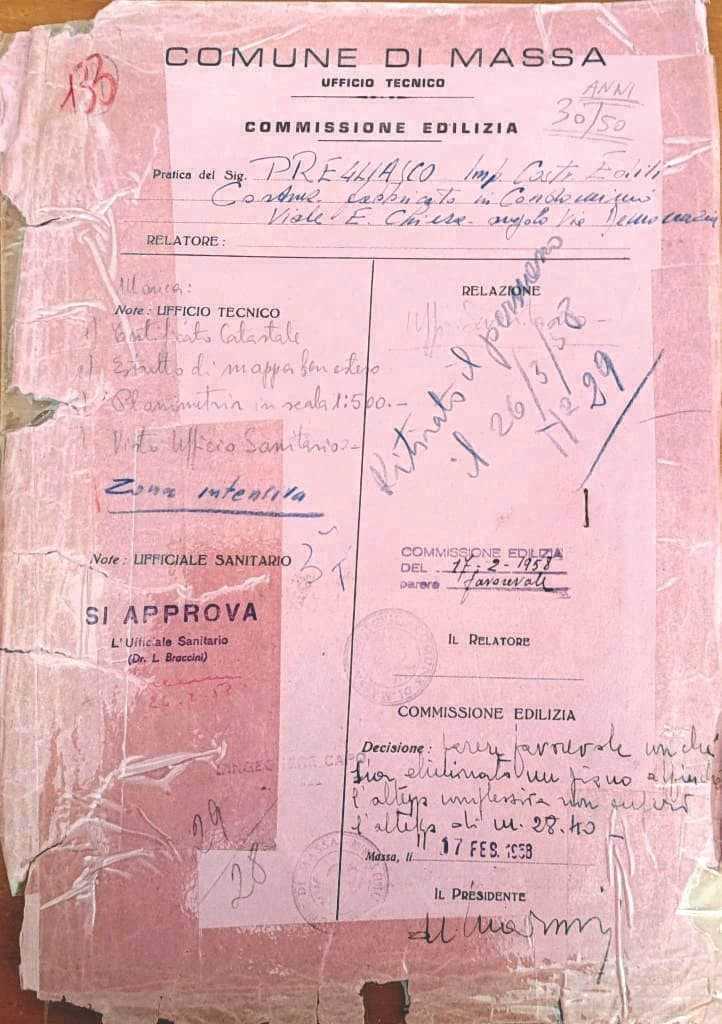 133
COMUNE DI MASSA
UFFICIO TECNICO
ANNI
30/50
COMMISSIONE EDILIZIA
Pratica del Sig. Imp. Costr. Edili
fabbricato in Condominio
Viale E. Chiesa angolo Via Democrazia
RELATORE:
Manca:
Note: UFFICIO TECNICO
Certificato Catastale
Estratto di mappa
Planimetria in scala 1:500.-
Visto Ufficio Sanitario.-
Zona intensiva
Note: UFFICIALE SANITARIO
SI APPROVA
L'Ufficiale Sanitario
(Dr. L. Braccini)
INGEGNERE CAPO
29
28
RELAZIONE
Ritirato il permesso
il 26/3/58
N° 29
COMMISSIONE EDILIZIA
DEL 17-2-1958
parere favorevole
IL RELATORE
COMMISSIONE EDILIZIA
Decisione: parere favorevole
sia eliminato un piano
l'altezza complessiva non
l'altezza di m. 28.40
Massa, lì 17 FEB. 1958
IL PRESIDENTE